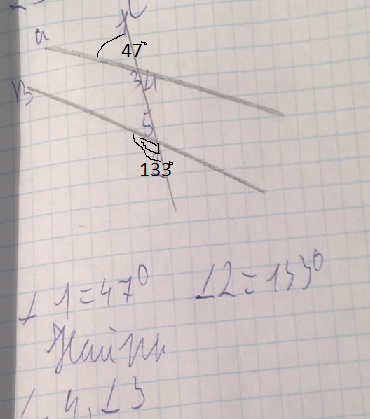 a
47°
3 4
в
5
133°
∠1=47° ∠2=133°
Найти
∠4, ∠3